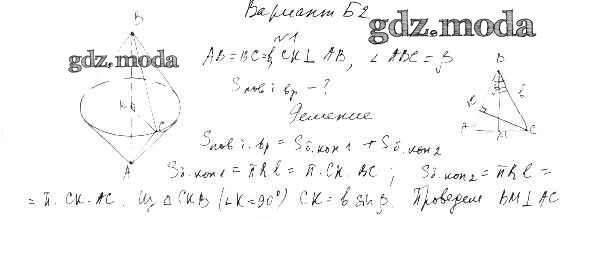 Вариант Б2
gdz.moda
gdz.moda
№1
AB = BC = b, CK ⊥ AB, ∠ ABC = β
Sпов. т. вр - ?
Решение
Sпов. т. вр = Sб. кон 1 + Sб. кон 2
Sб. кон 1 = πRl = π · CK · BC ; Sб. кон 2 = πRl =
= π · CK · AC. Из △ CKB (∠K = 90°) CK = b sin β. Проведем BM ⊥ AC
B
K
C
A
B
β
b
K
A
M
C